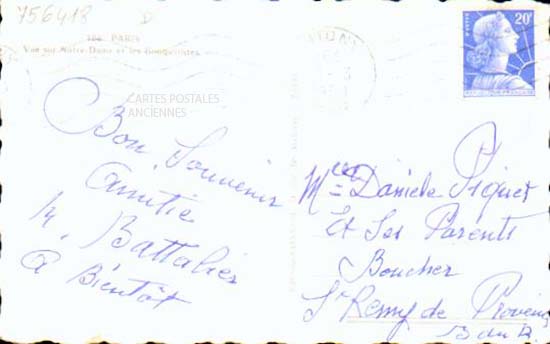 756418 D
164. PARIS
Vue sur Notre-Dame et les Bouquinistes
CARTES POSTALES
ANCIENNES
Bon Souvenir
Amitié
M. Battalier
A Bientôt
20F
Mlle Daniele Piquet
Et Ses Parents
Boucher
St Remy de Provence
B du R.